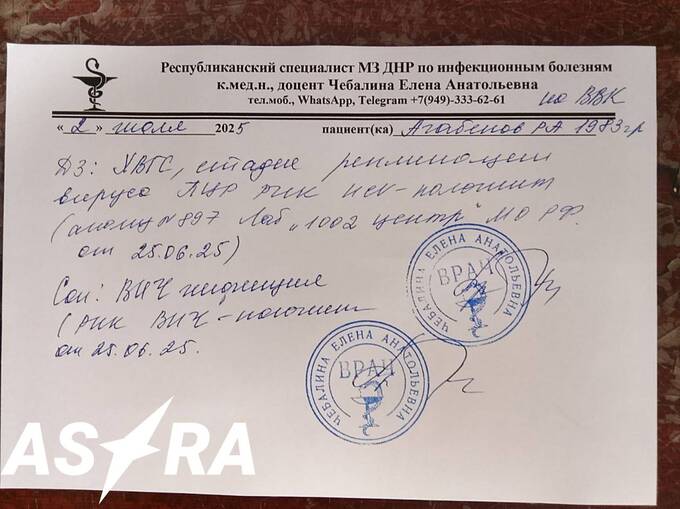 Республиканский специалист МЗ ДНР по инфекционным болезням
к.мед.н., доцент Чебалина Елена Анатольевна
тел.моб., WhatsApp, Telegram +7(949)-333-62-61
по ВВК
« 2 » июля 2025 пациент(ка) Агабенов РА 1983гр
ДЗ: ХВГС, стадия репликации
вируса ПЦР РНК HCV-положит
(анализ №897 Лаб „1002 центр" МО РФ
от 25.06.25)
Соп: ВИЧ инфекция
(РНК ВИЧ-положит
от 25.06.25.
ЧЕБАЛИНА ЕЛЕНА АНАТОЛЬЕВНА
ВРАЧ
ЧЕБАЛИНА ЕЛЕНА АНАТОЛЬЕВНА
ВРАЧ
ASTRA